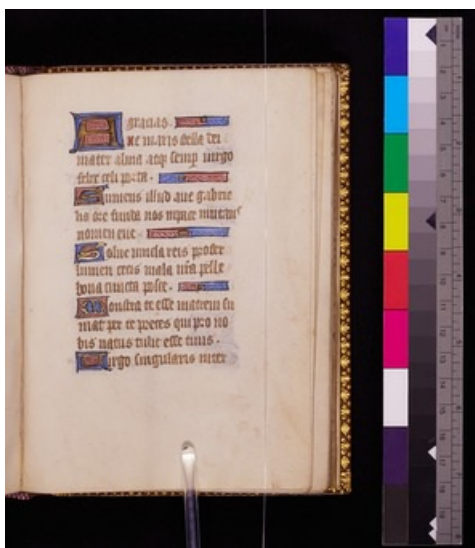 gracias.
Aue maris stella dei
mater alma atq; semp uirgo
felix celi porta.
Sumens illud aue gabrie
lis ore funda nos in pace mutans
nomen eue.
Solue uincla reis profer
lumen cecis mala nra pelle
bona cuncta posce.
Monstra te esse matrem su
mat per te preces qui pro no
bis natus tulit esse tuus.
Uirgo singularis inter